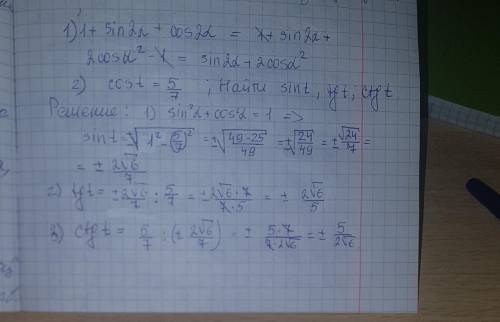 1) 1 + sin2α + cos2α = 1 + sin2α +
2cosα² - 1 = sin2α + 2cosα²
2) cost = 5/7 ; Найти sint, tgt, ctgt.
Решение: 1) sin²α + cos²α = 1 =>
sint = ±√(1² - (5/7)²) = ±√((49-25)/49) = ±√(24/49) = ±√24/7 =
= ± 2√6/7
2) tgt = ± 2√6/7 : 5/7 = ± 2√6·7/7·5 = ± 2√6/5
3) ctgt = 5/7 : (± 2√6/7) = ± 5·7/7·2√6 = ± 5/2√6